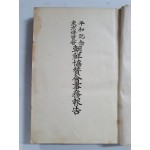 平和記念
東京博覧会
朝鮮協賛会事務報告